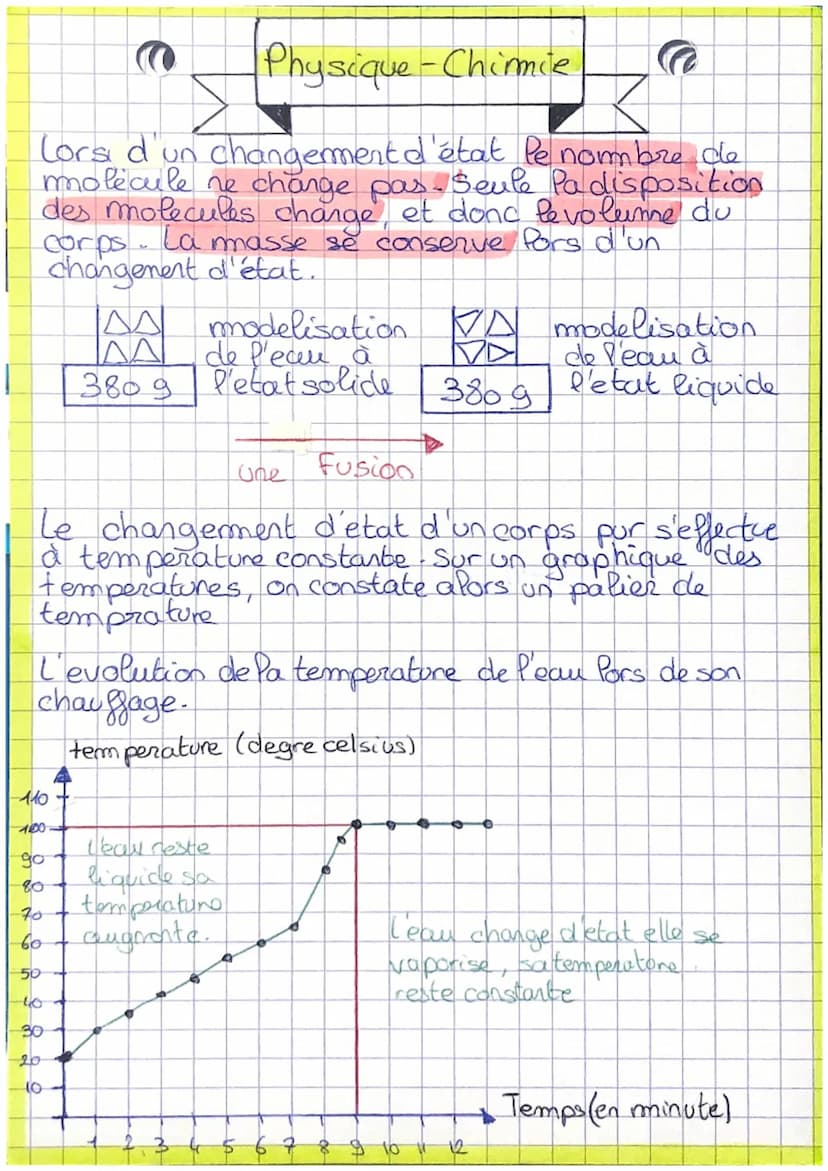 Physique-Chimie
Lors d'un changement d'état le nombre de
molécule ne change pas. Seule la disposition
des molecules change, et donc le volume du
corps. La masse se conserve lors d'un
changement d'état.
modelisation
de l'eau à
l'etat solide
380 g
modelisation
de l'eau à
l'etat liquide
380 g
une fusion
Le changement d'etat d'un corps pur s'effectue
à temperature constante. Sur un graphique des
temperatures, on constate alors un palier de
temprature
L'evolution de la temperature de l'eau lors de son
chauffage.
temperature (degre celsius)
110
100
90
80
70
60
50
40
30
20
10
L'eau reste
liquide sa
temperature
augmente.
l'eau change d'etat elle se
vaporise, sa temperature
reste constante
Temps (en minute)
1 2 3 4 5 6 7 8 9 10 11 12